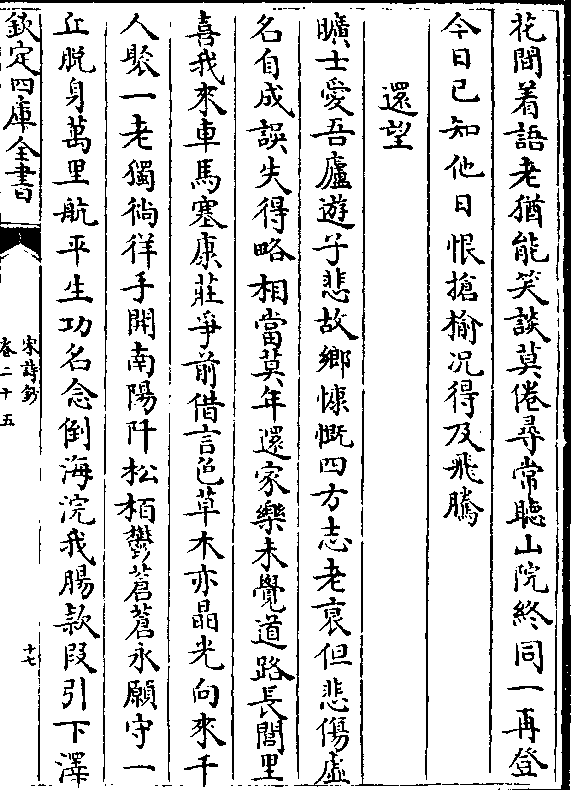 花間着語老猶能笑談莫倦尋常聽山院終同一再登
今日已知他日恨搶榆况得及飛騰
還望
曠士愛吾廬遊子悲故鄉慷慨四方志老衰但悲傷虛
名自成誤失得略相當莫年還家樂未覺道路長閭里
喜我來車馬塞康莊爭前借言色草木亦晶光向來千
人聚一老獨徜徉手開南陽阡松栢鬱蒼蒼永願守一
丘脫身萬里航平生功名念倒海浣我腸款段引下澤
欽定四庫全書
宋詩鈔
卷二十五
十七